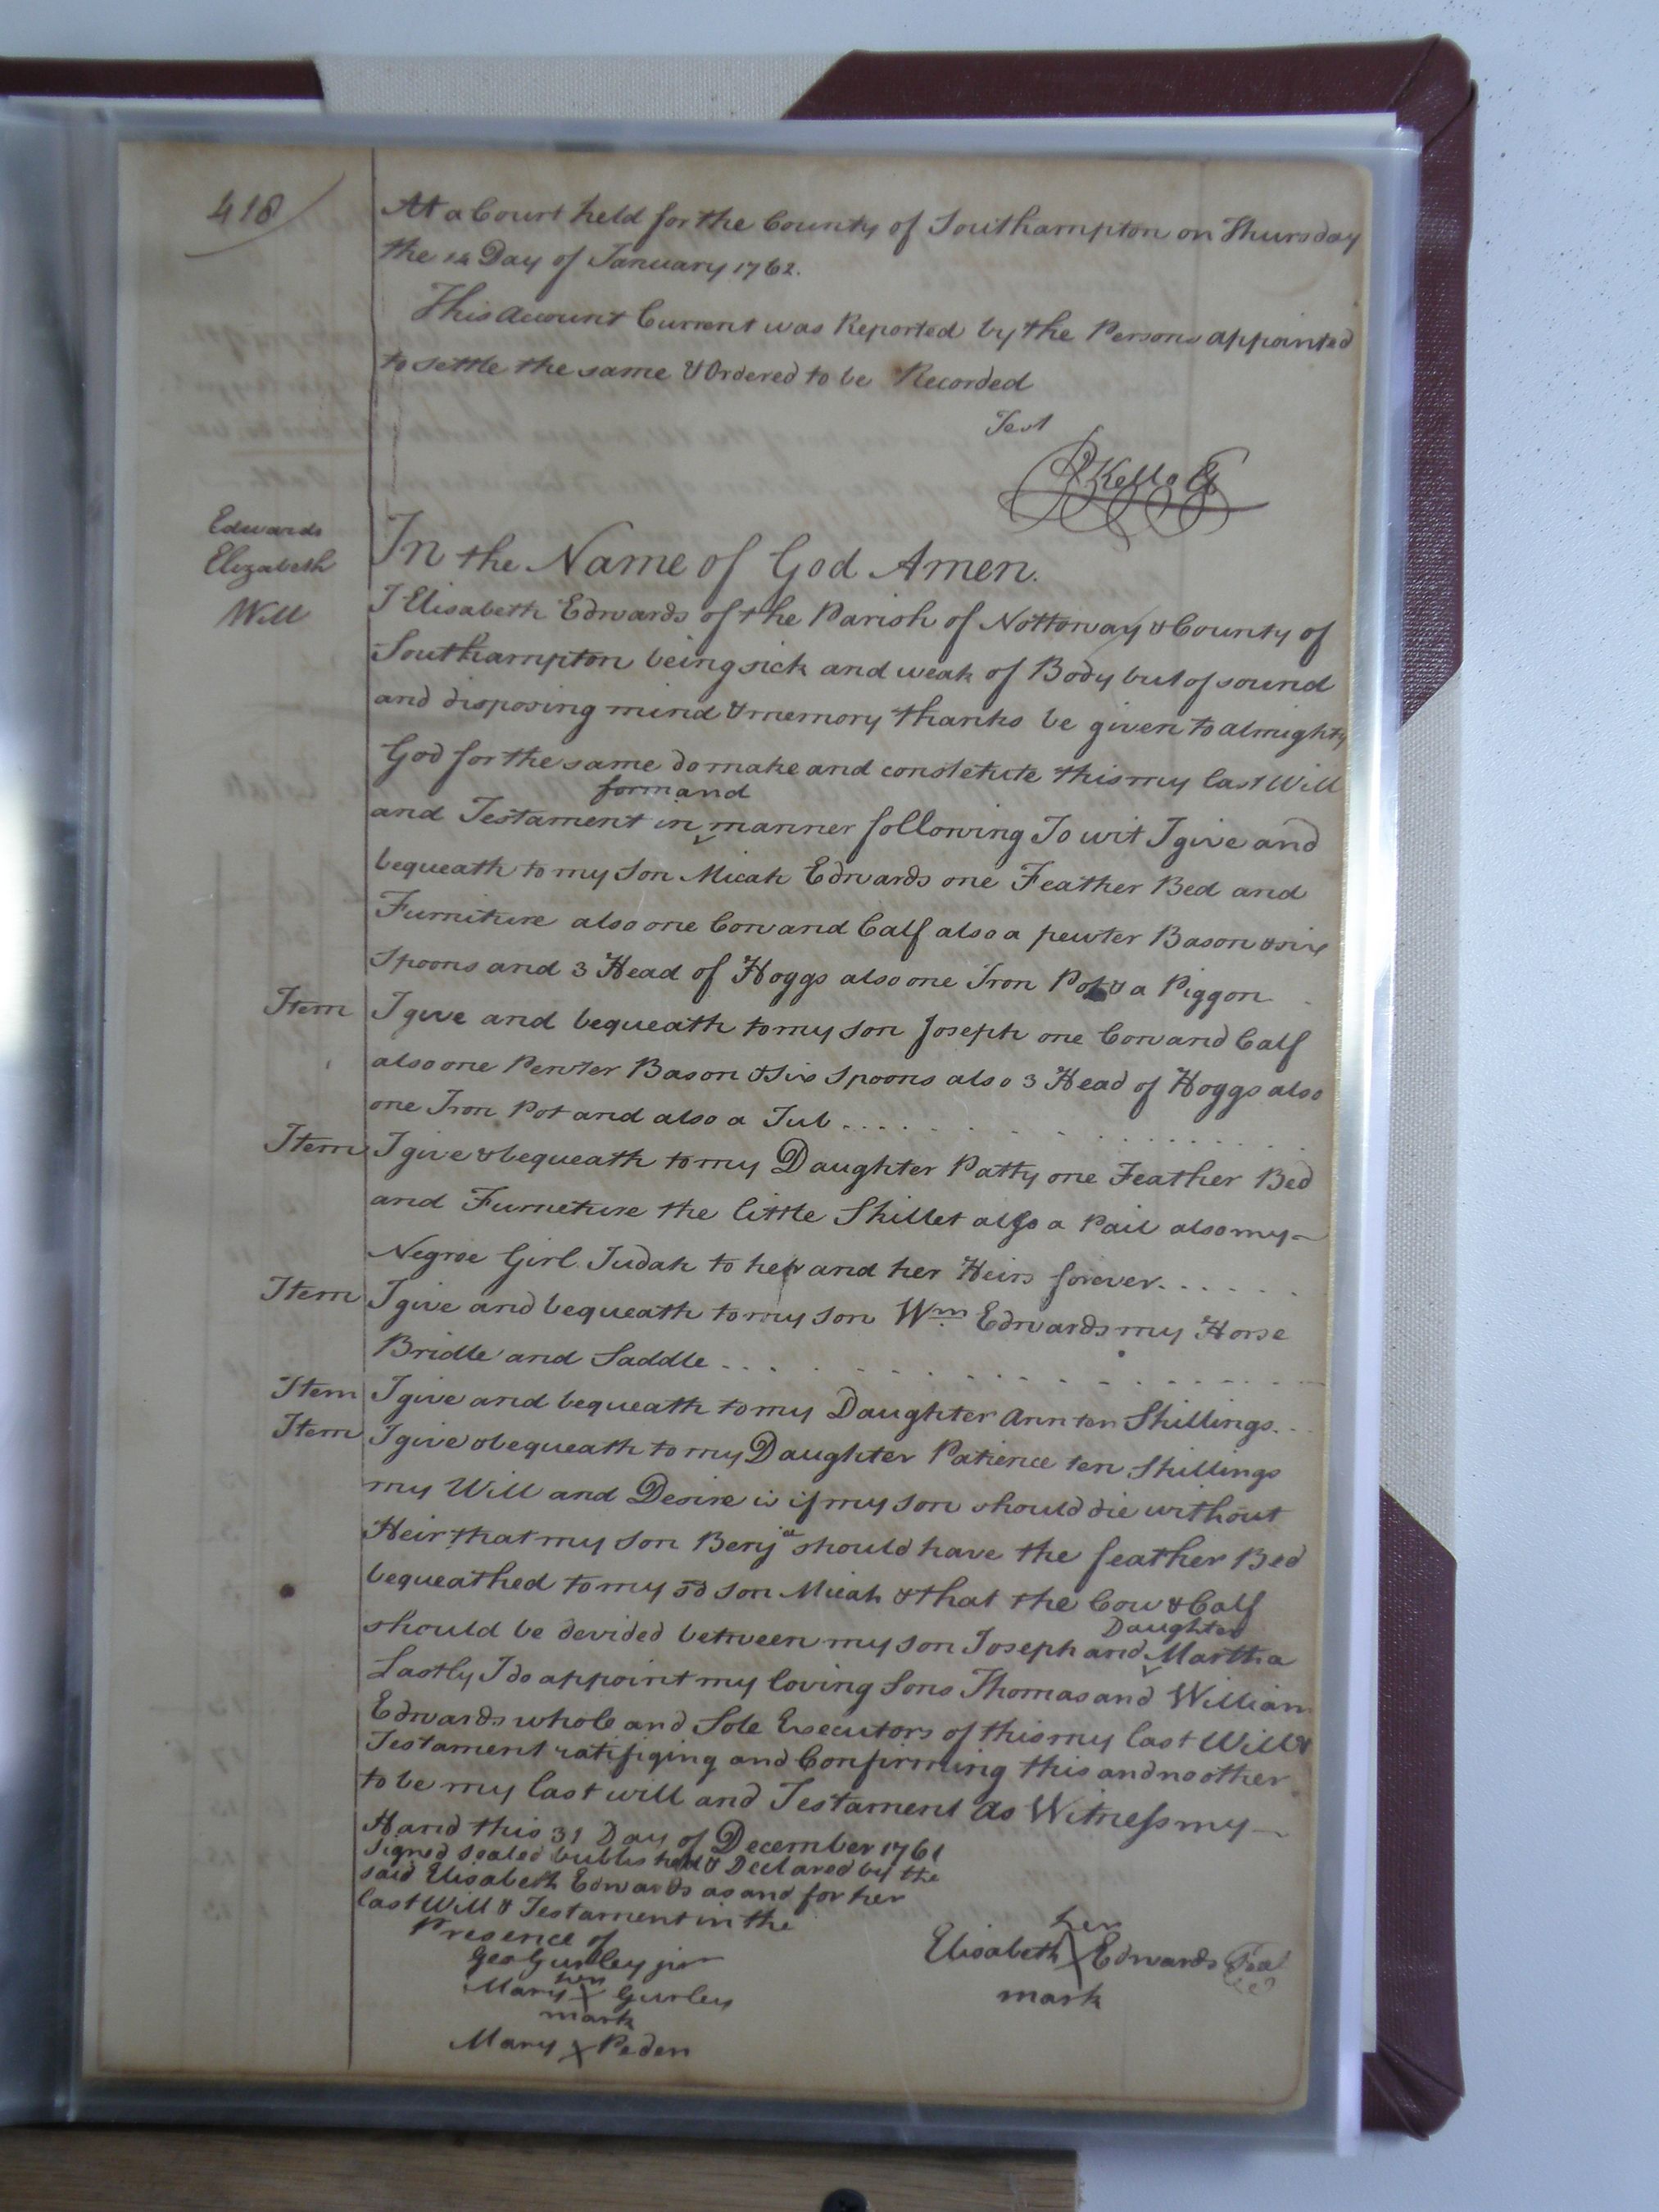 418
At a Court held for the County of Southampton on Thursday
the 14 Day of January 1762.
This Account Current was Reported by the Persons appointed
to settle the same & Ordered to be Recorded
Test
R Kello Cl
Edwards
Elizabeth
Will
In the Name of God Amen.
I Elisabeth Edwards of the Parish of Nottoway & County of
Southampton being sick and weak of Body but of sound
and disposing mind & memory thanks be given to almighty
God for the same do make and constetute this my last Will
form and
and Testament in manner following To wit I give and
bequeath to my Son Micah Edwards one Feather Bed and
Furniture also one Cow and Calf also a pewter Bason & six
Spoons and 3 Head of Hoggs also one Iron Pot & a Piggon
Item I give and bequeath to my son Joseph one Cow and Calf
also one Pewter Bason & Six Spoons also 3 Head of Hoggs also
one Iron Pot and also a Tub
Item I give & bequeath to my Daughter Patty one Feather Bed
and Furneture the little Skillet also a Pail also my
Negroe Girl Judah to her and her Heirs forever
Item I give and bequeath to my Son Wm Edwards my Horse
Bridle and Saddle
Item I give and bequeath to my Daughter Ann ten Shillings
Item I give & bequeath to my Daughter Patience ten Shillings
my Will and Desire is if my son should die without
Heir that my Son Benja should have the feather Bed
bequeathed to my sd son Micah & that the Cow & Calf
Daughter
should be devided between my son Joseph and Martha
Lastly I do appoint my loving Sons Thomas and William
Edwards whole and Sole Executors of this my last Will &
Testament ratifiging and Confirming this and no other
to be my last will and Testament As Witness my
Hand this 31 Day of December 1761
Signed sealed & Declared by the
said Elisabeth Edwards as and for her
last Will & Testament in the
Presence of
Geo Gurley junr
her
Mary X Gurley
mark
Mary X Peden
her
Elisabeth X Edwards Seal
mark